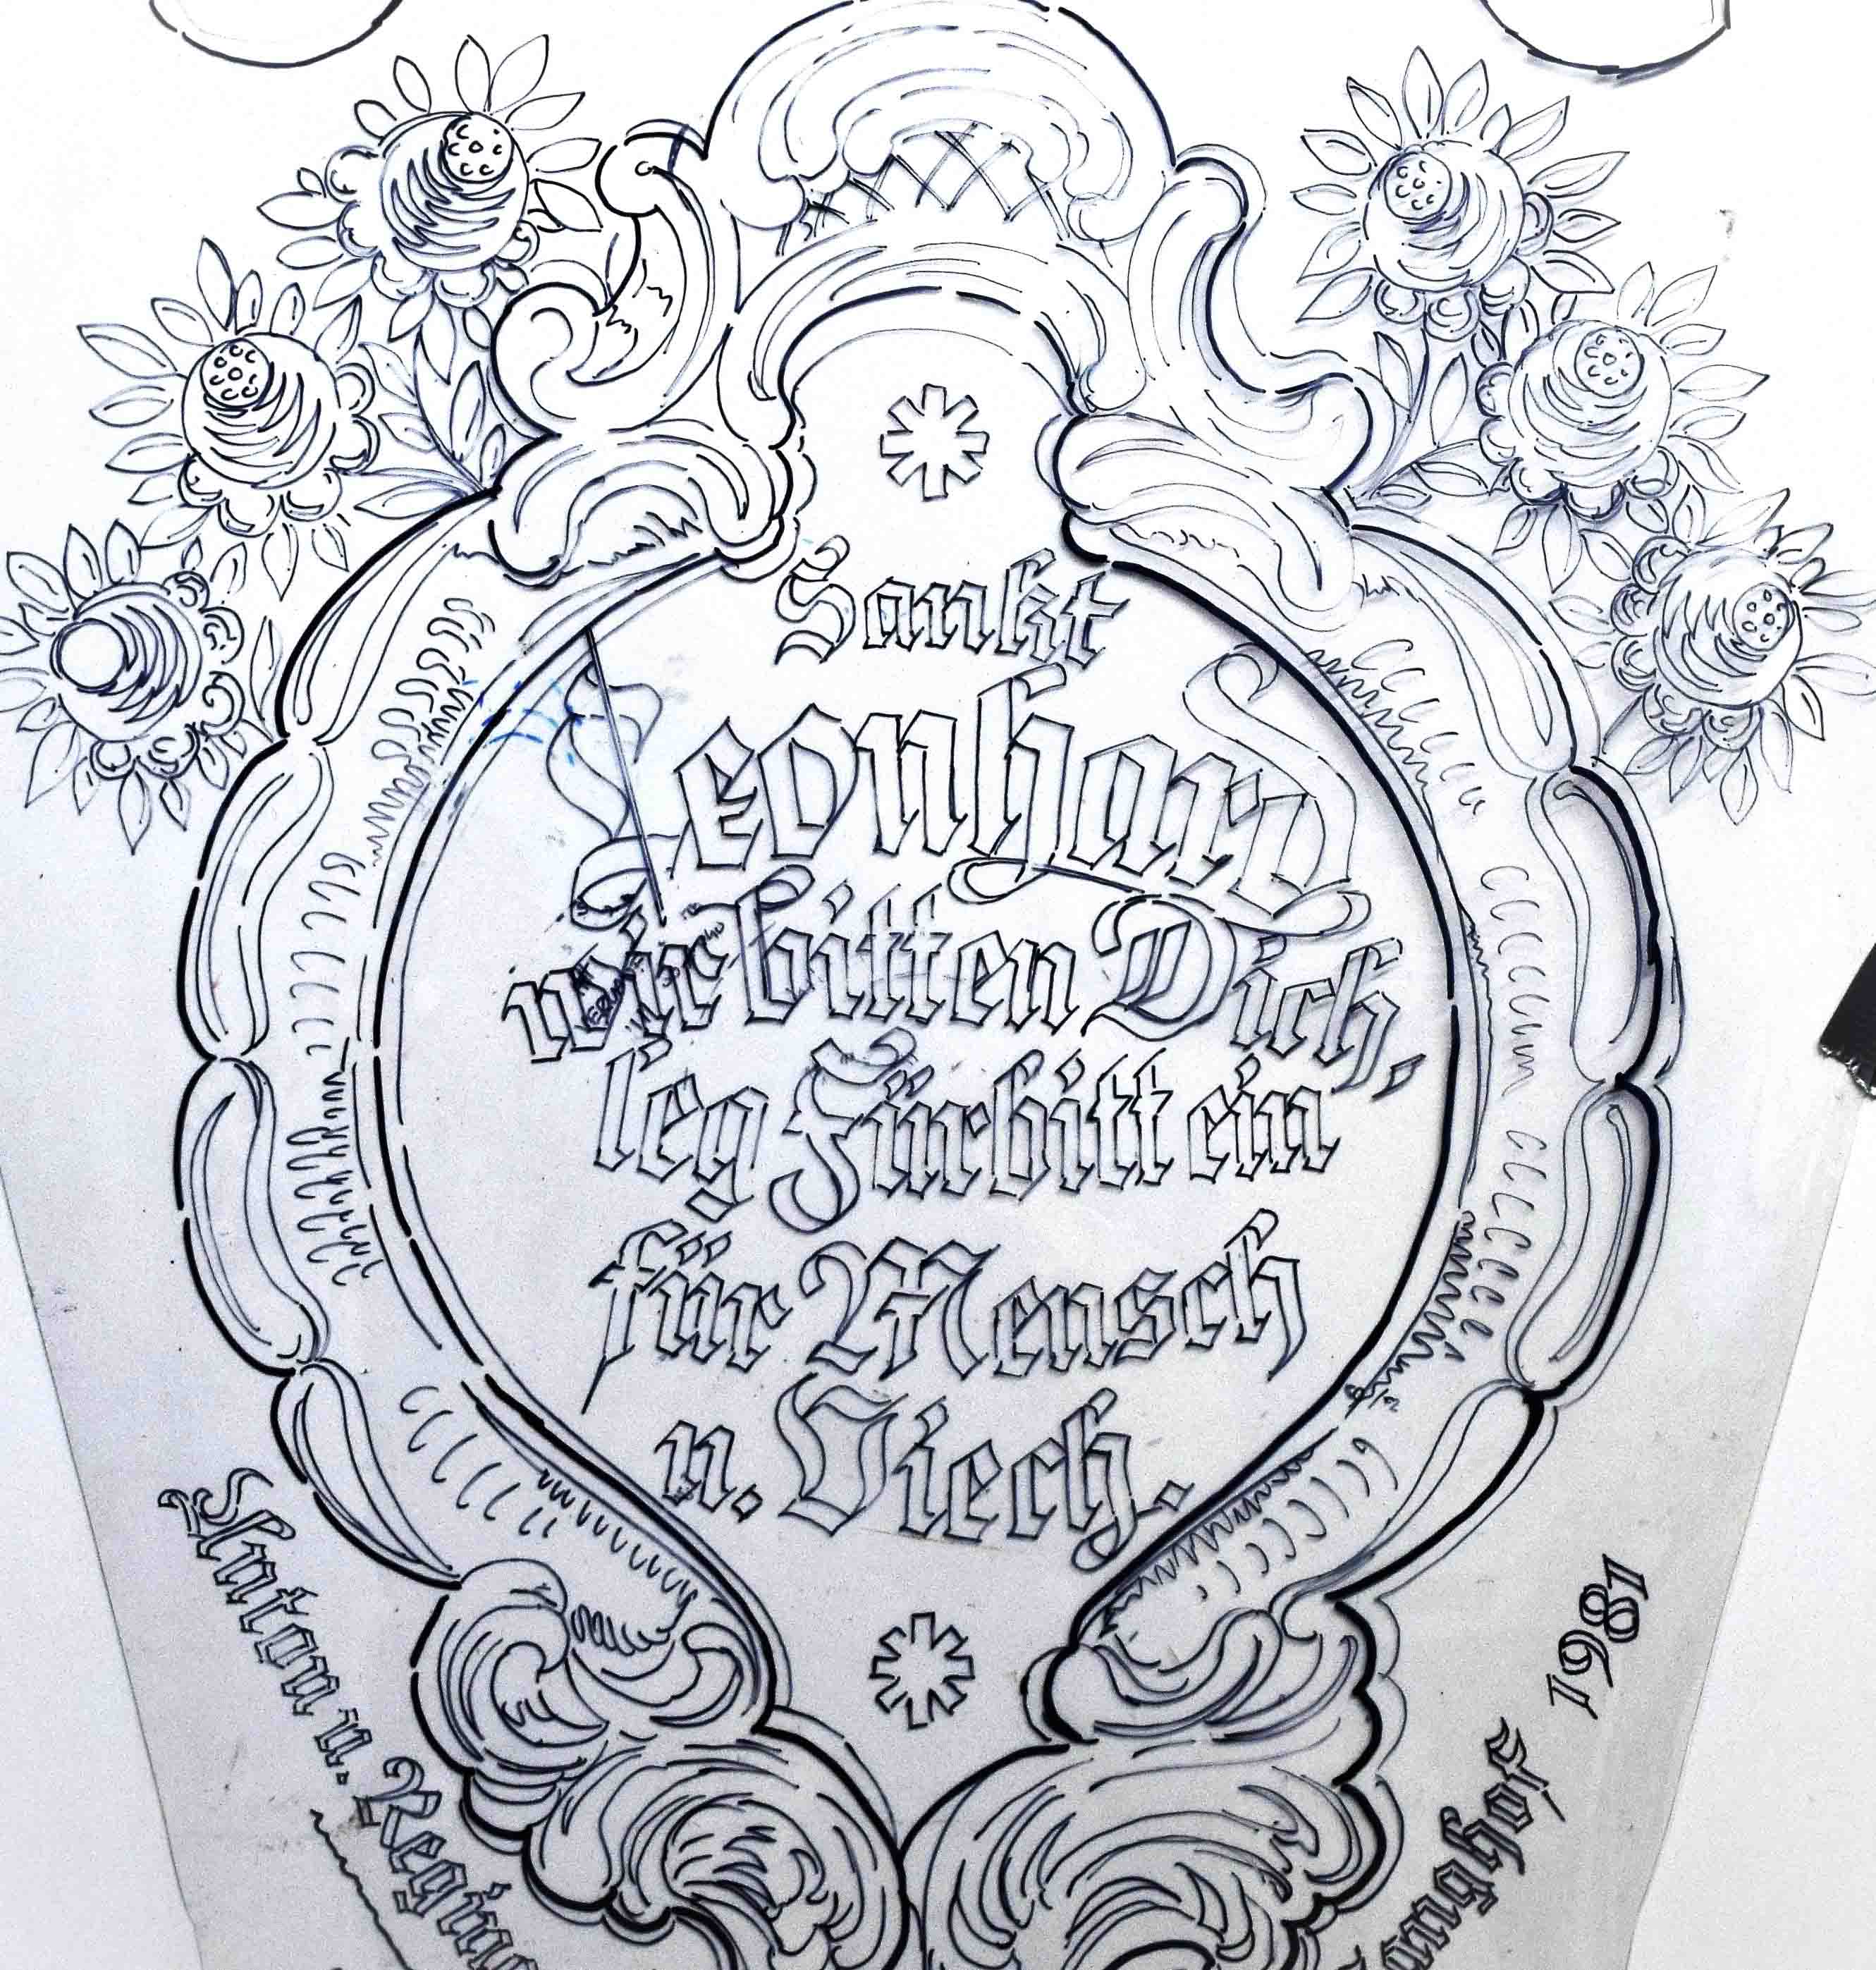 Sankt
Leonhard
wir bitten Dich,
leg Fürbitt ein
für Mensch
u. Viech.
Anton u.
1981